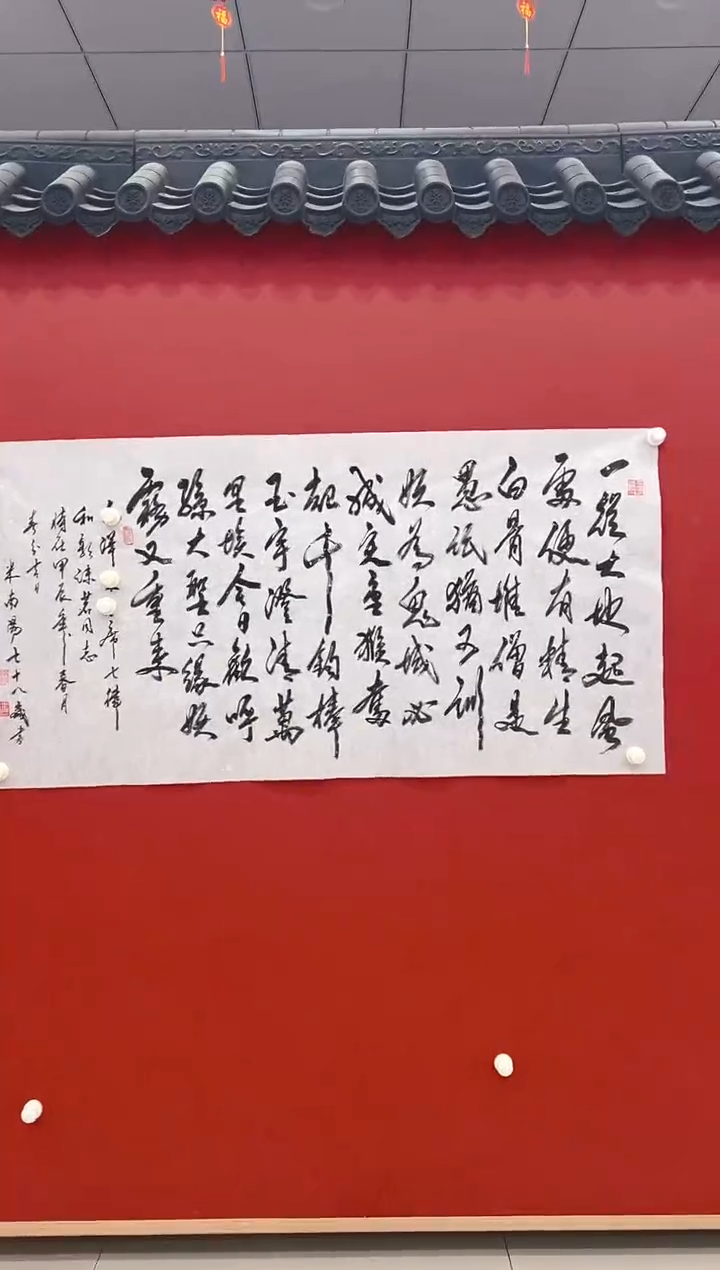 福
福
一從大地起風
雷便有精生
白骨堆僧是
愚氓猶可訓
妖為鬼蜮必
成災金猴奮
起千鈞棒
玉宇澄清萬
里埃今日歡呼
孫大聖只緣妖
霧又重來
席七律
和郭沫若同志
時在甲辰年之春月
春分吉日
米南陽七十八歲書